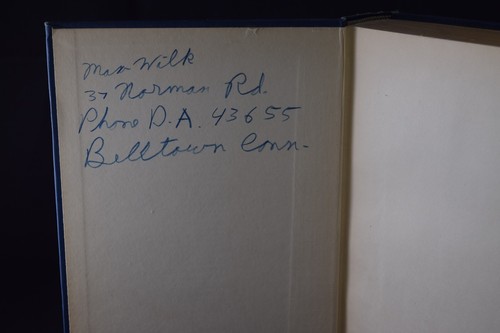 Max Wilk
37 Norman Rd.
Phone D.A. 43655
Belltown Conn.